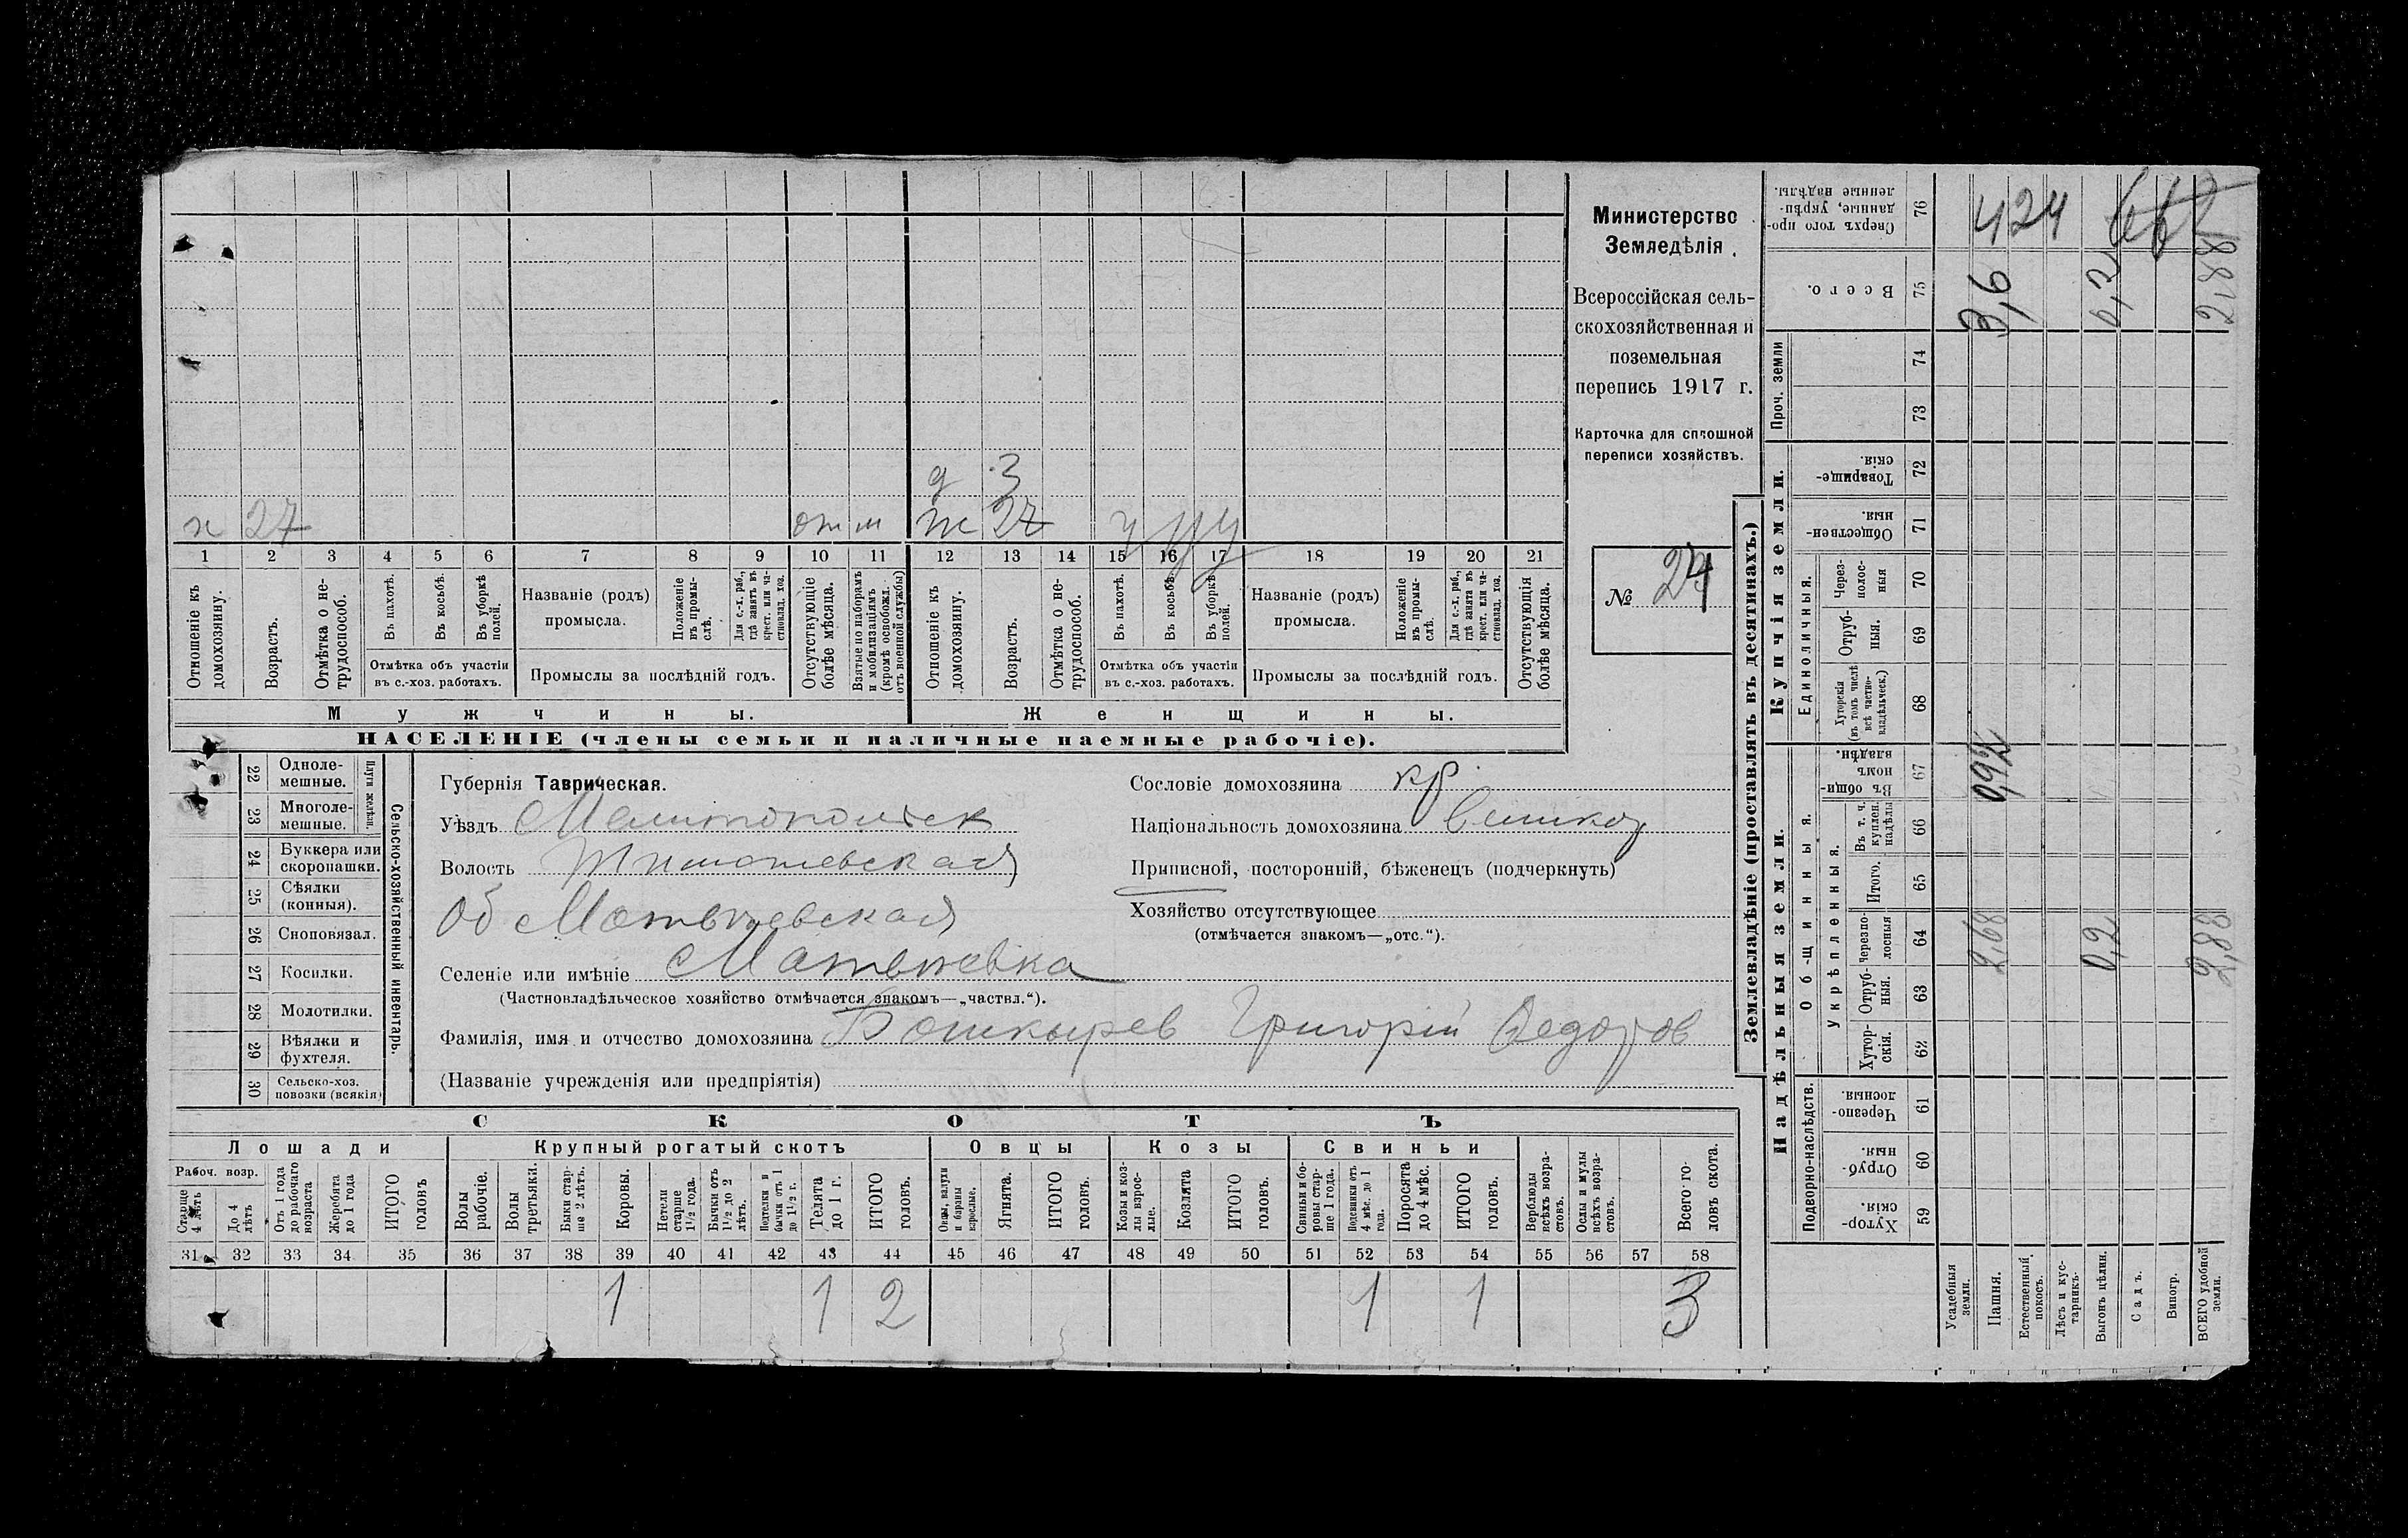 Министерство
Земледѣлія.
Всероссійская сель-
скохозяйственная и
поземельная
перепись 1917 г.
Карточка для сплошной
переписи хозяйствъ.
№ 24
д 3
х 27 от м ж 27
1 2 3 4 5 6 7 8 9 10 11 12 13 14 15 16 17 18 19 20 21
Отношеніе къ домохозяину.
Возрастъ.
Отмѣтка о не-
трудоспособ.
Въ пахотѣ.
Въ косьбѣ.
Въ уборкѣ полей.
Отмѣтка объ участіи
въ с.-хоз. работахъ.
Названіе (родъ)
промысла.
Положеніе въ промы-
слѣ.
Для с.-х. раб., гдѣ занятъ въ крест. или ча-
стновлад. хоз.
Промыслы за послѣдній годъ.
Отсутствующіе болѣе мѣсяца.
Взятые по наборамъ и мобилизаціямъ (кромѣ освобожд. отъ военной службы)
Отношеніе къ домохозяину.
Возрастъ.
Отмѣтка о не-
трудоспособ.
Въ пахотѣ.
Въ косьбѣ.
Въ уборкѣ полей.
Отмѣтка объ участіи
въ с.-хоз. работахъ.
Названіе (родъ)
промысла.
Положеніе въ промы-
слѣ.
Для с.-х. раб., гдѣ занята въ крест. или ча-
стновлад. хоз.
Промыслы за послѣдній годъ.
Отсутствующія болѣе мѣсяца.
Мужчины.
Женщины.
НАСЕЛЕНІЕ (члены семьи и наличные наемные рабочіе).
Сельско-хозяйственный инвентарь.
Плуги желѣзн.
22 Одноле-
мешные.
23 Многоле-
мешные.
24 Буккера или
скоропашки.
25 Сѣялки
(конныя).
26 Сноповязал.
27 Косилки.
28 Молотилки.
29 Вѣялки и
фухтеля.
30 Сельско-хоз.
повозки (всякія)
Губернія Таврическая.
Уѣздъ Мелитопольск
Волость Тимошевская
Об Матвѣевская
Селеніе или имѣніе Матвѣевка
(Частновладѣльческое хозяйство отмѣчается знакомъ—„частвл.“).
Фамилія, имя и отчество домохозяина Башкырев Григорій Федоров
(Названіе учрежденія или предпріятія)
Сословіе домохозяина кр
Національность домохозяина
Приписной, посторонній, бѣженецъ (подчеркнуть)
Хозяйство отсутствующее
(отмѣчается знакомъ—„отс.“).
СКОТЪ
Лошади
Крупный рогатый скотъ
Овцы
Козы
Свиньи
Рабоч. возр.
Старше 4 лѣтъ
До 4 лѣтъ
Отъ 1 года до рабочаго возраста
Жеребята до 1 года
ИТОГО головъ
Волы рабочіе.
Волы третьяки.
Быки стар-
ше 2 лѣтъ.
Коровы.
Нетели старше 1½ года.
Бычки отъ 1½ до 2 лѣтъ.
Подтелки и бычки отъ 1 до 1½ г.
Телята до 1 г.
ИТОГО головъ.
Овцы, валухи и бараны взрослые.
Ягнята.
ИТОГО головъ.
Козы и коз-
лы взрос-
лые.
Козлята
ИТОГО головъ.
Свиньи и бо-
ровы стар-
ше 1 года.
Подсвинки отъ 4 мѣс. до 1 года.
Поросята до 4 мѣс.
ИТОГО головъ.
Верблюды всѣхъ возра-
стовъ.
Ослы и мулы всѣхъ возра-
стовъ.
Всего го-
ловъ скота.
31 32 33 34 35 36 37 38 39 40 41 42 43 44 45 46 47 48 49 50 51 52 53 54 55 56 57 58
1 1 2 1 1 3
Землевладѣніе (проставлять въ десятинахъ.)
Надѣльныя земли.
Купчія земли.
Проч. земли
Подворно-наслѣдств.
Общинныя.
Укрѣпленныя.
Единоличныя.
Хутор-
скія. 59
Отруб-
ныя. 60
Черезпо-
лосныя. 61
Хутор-
скія. 62
Отруб-
ныя. 63
Черезпо-
лосныя 64
Итого. 65
Въ т. ч. куплен. надѣлы 66
Въ общи-
номъ владѣн. 67
Хуторскія (въ томъ числѣ всѣ частно-
владѣльческ.) 68
Отруб-
ныя. 69
Через-
полос-
ныя 70
Обществен-
ныя. 71
Товарище-
скія. 72
73
74
Всего. 75
Сверхъ того про-
данные, укрѣп-
ленные надѣлы. 76
Усадебныя земли.
Пашня.
Естественный покосъ.
Лѣсъ и кус-
тарникъ.
Выгонъ цѣлин.
Садъ.
Виногр.
ВСЕГО удобной земли.
2,68 0,2 2,88
0,92
3,6 0,2 2,88
424